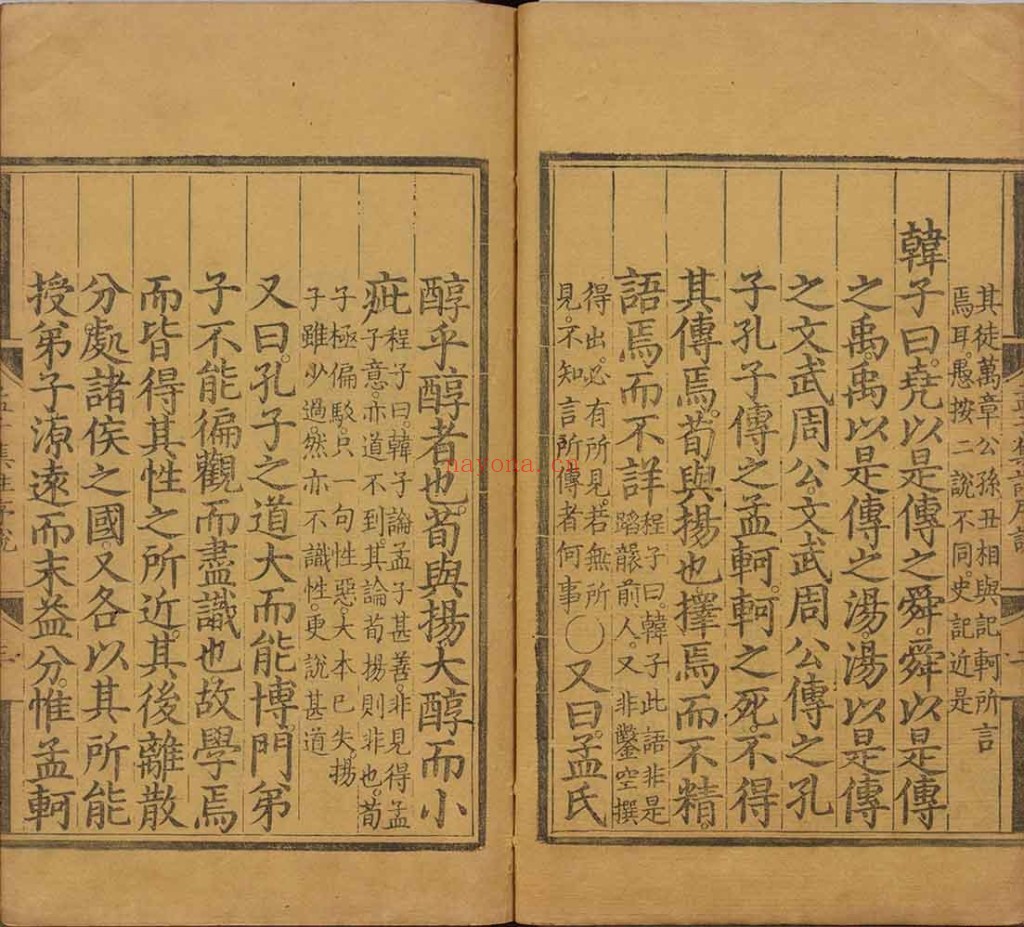 其徒萬章公孫丑相與記軻所言
焉耳。愚按二說不同。史記近是
韓子曰。堯以是傳之舜。舜以是傳
之禹。禹以是傳之湯。湯以是傳
之文武周公。文武周公傳之孔
子。孔子傳之孟軻。軻之死。不得
其傳焉。荀與揚也擇焉而不精。
語焉而不詳程子曰。韓子此語非是
蹈襲前人。又非鑿空撰
得出。必有所見。若無所
見。不知言所傳者何事〇又曰。孟氏
醇乎醇者也。荀與揚大醇而小
疵程子曰。韓子論孟子甚善。非見得孟
子意。亦道不到。其論荀揚則非也。荀
子極偏駁。只一句性惡。大本已失。揚
子雖少過。然亦不識性。更說甚道
又曰。孔子之道大而能博。門弟
子不能徧觀而盡識也。故學焉
而皆得其性之所近。其後離散
分處諸侯之國。又各以其所能
授弟子。源遠而末益分。惟孟軻
nayona.cn